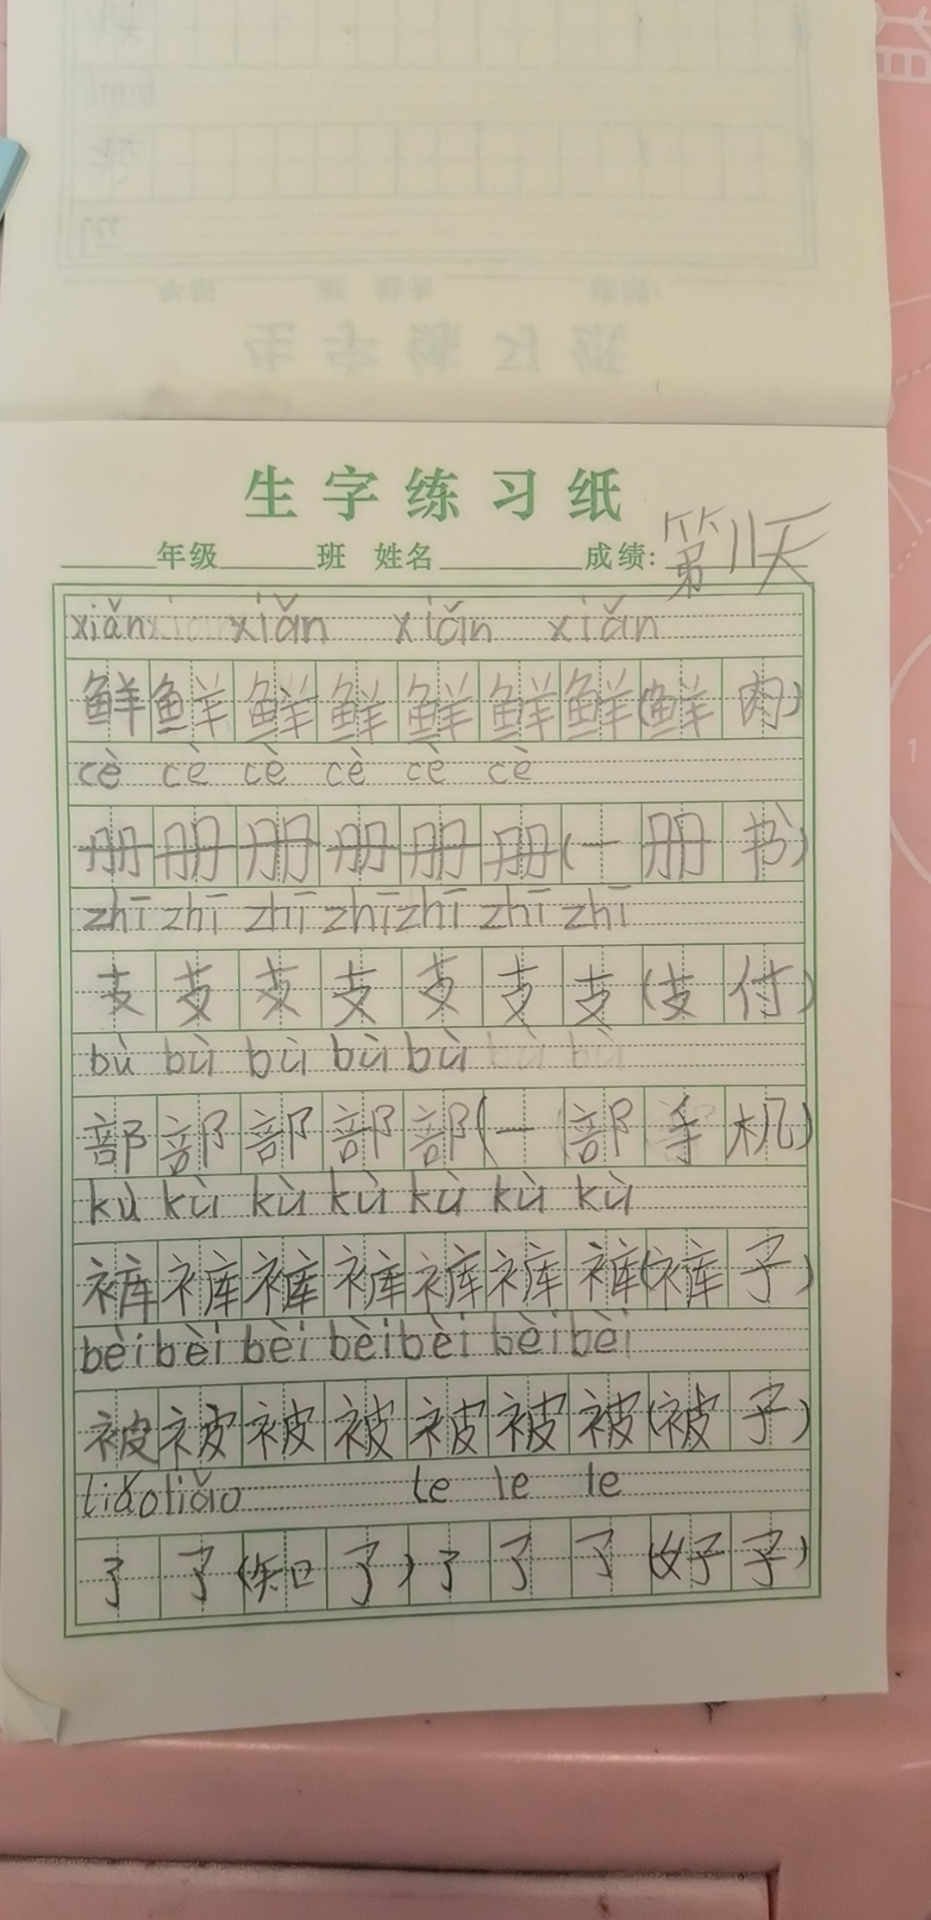 生字练习纸
年级 班 姓名 成绩: 第11天
xiǎn xiǎn xiǎn xiǎn
鲜 鲜 鲜 鲜 鲜 鲜 鲜 (鲜 肉)
cè cè cè cè cè cè
册 册 册 册 册 册 (一 册 书)
zhī zhī zhī zhī zhī zhī zhī
支 支 支 支 支 支 支 (支 付)
bù bù bù bù bù
部 部 部 部 部 (一 部 手 机)
kù kù kù kù kù kù kù
裤 裤 裤 裤 裤 裤 裤 (裤 子)
bèi bèi bèi bèi bèi bèi bèi
被 被 被 被 被 被 被 (被 子)
liǎo liǎo le le le
了 了 (知 了) 了 了 了 (好 子)